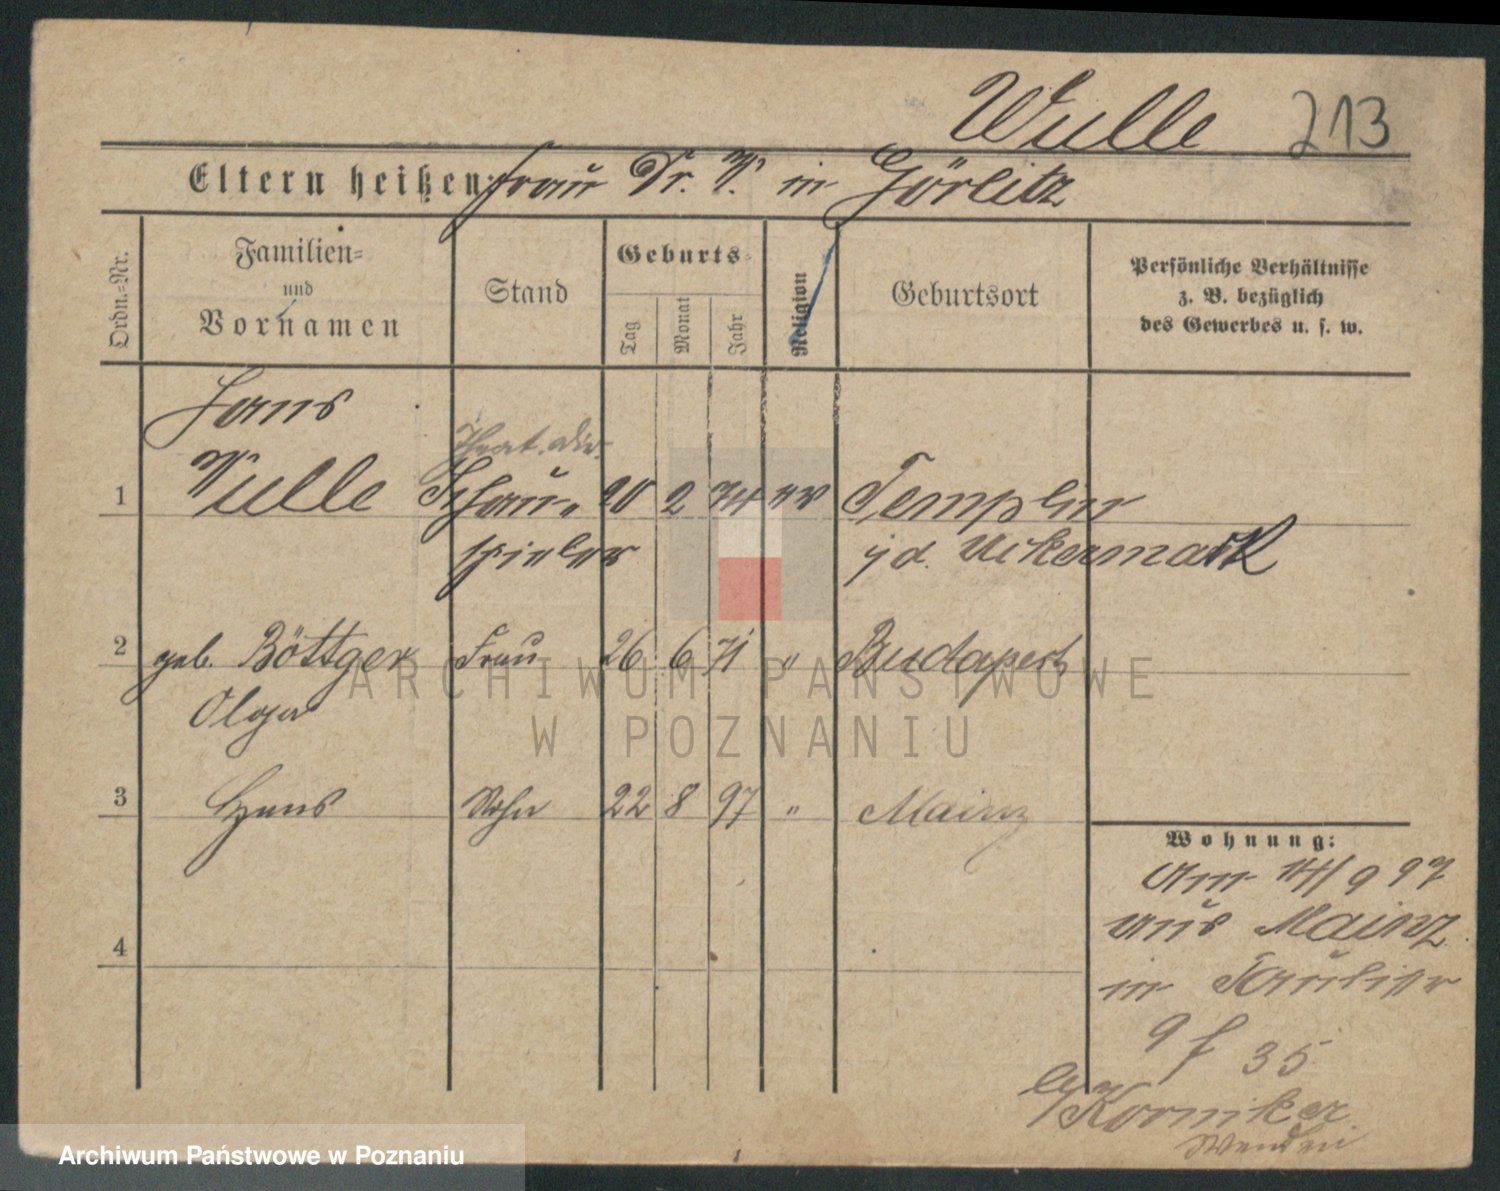 Wulle 213
Eltern heißen: Frau Dr. W. in Görlitz
Ordn.-Nr.
Familien-
und
Vornamen
Stand
Geburts-
Tag
Monat
Jahr
Religion
Geburtsort
Persönliche Verhältnisse
z. B. bezüglich
des Gewerbes u. s. w.
Hans
Theat. Dir.
1 Wulle Schau- 20 2 74 ev Templin
spieler i/d. Uckermark
2 geb. Böttger Frau 26 6 71 " Budapest
Olga
3 Hans Sohn 22 8 97 " Mainz
Wohnung:
Am 14/9 97
aus Mainz
in
4
9 f 35
b/ Korniker
ARCHIWUM PAŃSTWOWE
W POZNANIU
Archiwum Państwowe w Poznaniu